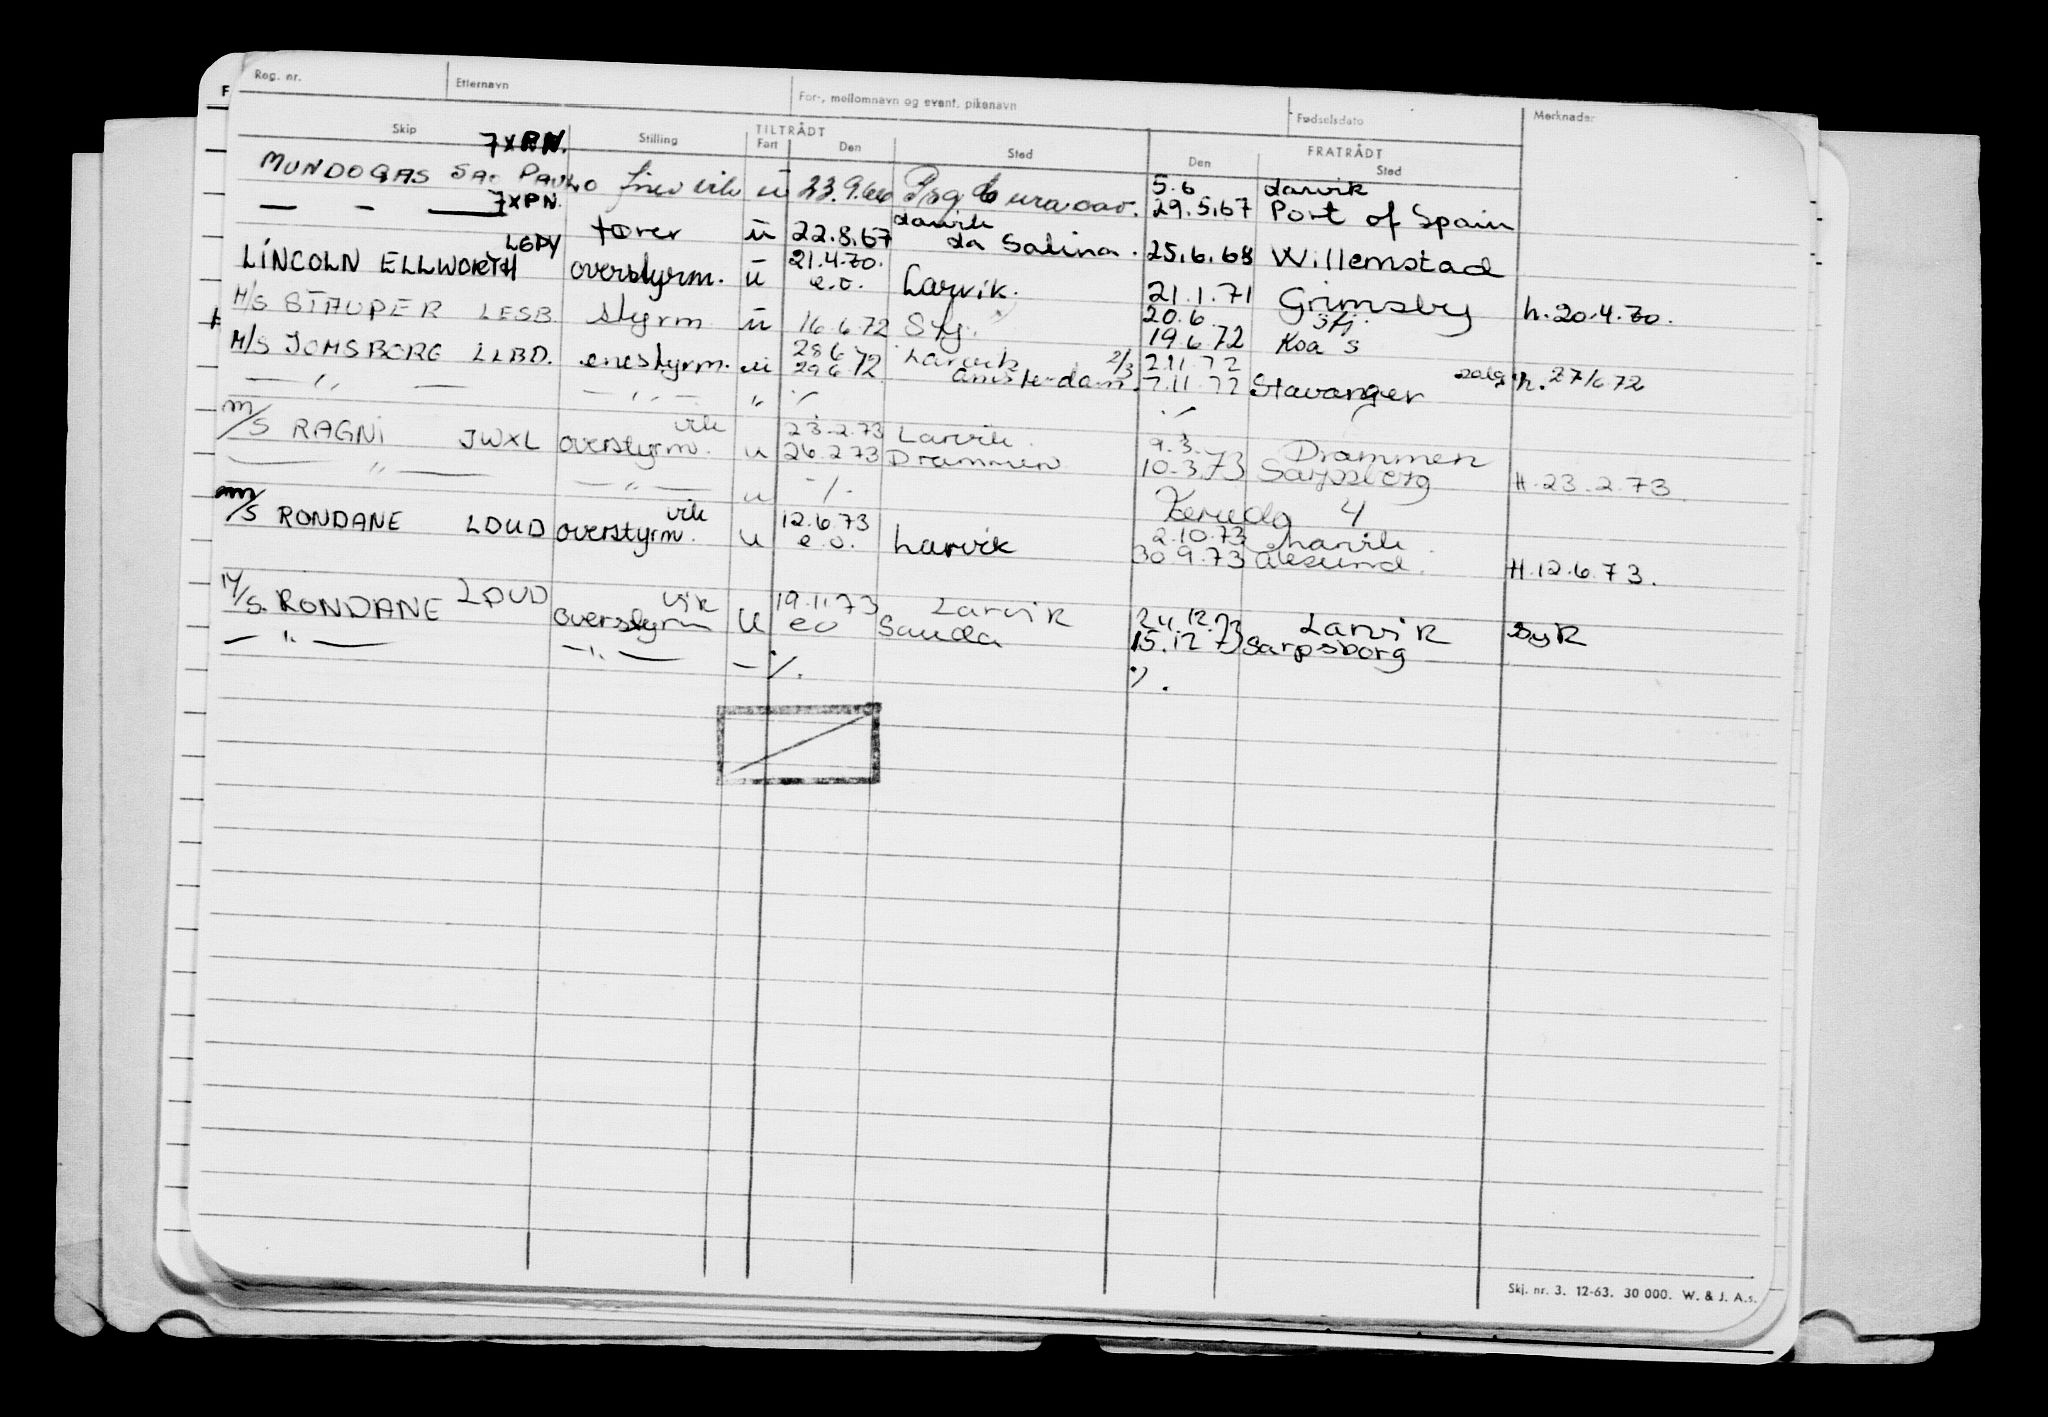 Reg. nr. Etternavn For-, mellomnavn og event. pikenavn Fødselsdato Merknader
Skip Stilling TILTRÅDT FRATRÅDT
Fart Den Sted Den Sted
7XPN.
MUNDOGAS SAO PAULO ü 23.9.66 5.6 Larvik
29.5.67 Port of Spain
7XPN.
— - — fører ü 22.8.67 Larvik
La Salina. 25.6.68 Willemstad
LINCOLN ELLWORTH LGPY overstyrm. ü 21.4.70.
e.o. Larvik. 21.1.71 Grimsby h.20.4.70.
M/S STAUPER LESB styrm ü 16.6.72 Stg. 20.6 Sfj.
19.6.72
M/S JOMSBORG LLBD. enestyrm. u 28.6
29.6.72 Larvik
Amsterdam. 2/3 2.11.72
7.11.72 Stavanger salg h. 27/6 72
— " — — " — " ./. ./.
m/s RAGNI JWXL vik
overstyrm. u 23.2.73 Larvik
26.2.73 Drammen 9.3. Drammen
10.3.73 Sarpsborg H.23.2.73.
— " — — " — u ./.
4
m/s RONDANE LDUD vik
overstyrm. u 12.6.73
e.o. Larvik 2.10.73 Larvik
30.9.73 Ålesund. H.12.6.73.
M/S. RONDANE LDUD vik
overstyrm U 19.11.73 Larvik
eo Sauda 24.12.73 Larvik syk
15.12.73 Sarpsborg
— " — — " — — ./. ./.
Skj. nr. 3. 12-63. 30 000. W. & J. A.s.